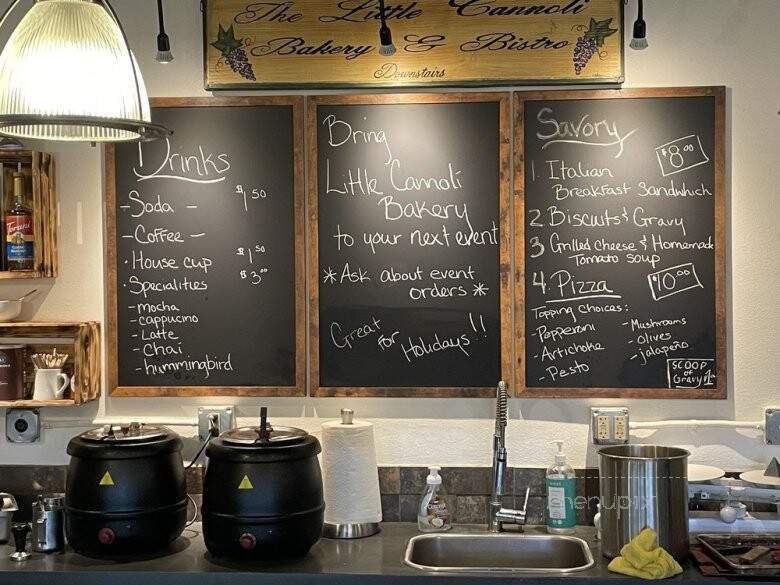 The Little Cannoli
Bakery & Bistro
Downstairs
Drinks
- Soda - $1 50
- Coffee -
· House cup $1 50
· Specialities $3 00
- mocha
- cappucino
- Latte
- Chai
- hummingbird
Bring
Little Cannoli
Bakery
to your next event
*Ask about event
orders *
Great
for
Holidays!!
Savory
1. Italian $8 00
Breakfast Sandwhich
2 Biscuits & Gravy
3 Grilled Cheese & Homemade
Tomato Soup
4. Pizza $10 00
Topping Choices:
- Pepperoni
- Artichoke
- Pesto
- Mushrooms
- Olives
- jalapeño
SCOOP
of
Gravy $1
Torani
menupix